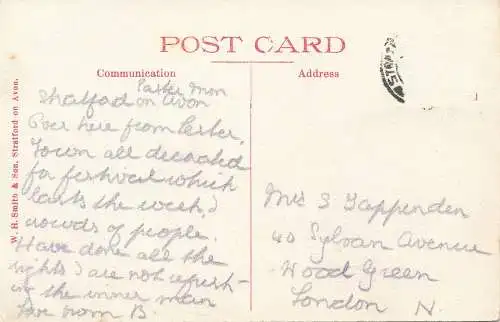 POST CARD
Communication
Address
W. H. Smith & Son, Stratford on Avon.
Easter Mon
Statford on Avon
Over here from Lester.
Town all decorated
for festival which
lasts the week, &
crowds of people.
Have done all the
sights & are not refresh-
ing the inner man
love from B.
Mrs S Tappenden
40 Sylvan Avenue
Wood Green
London N.